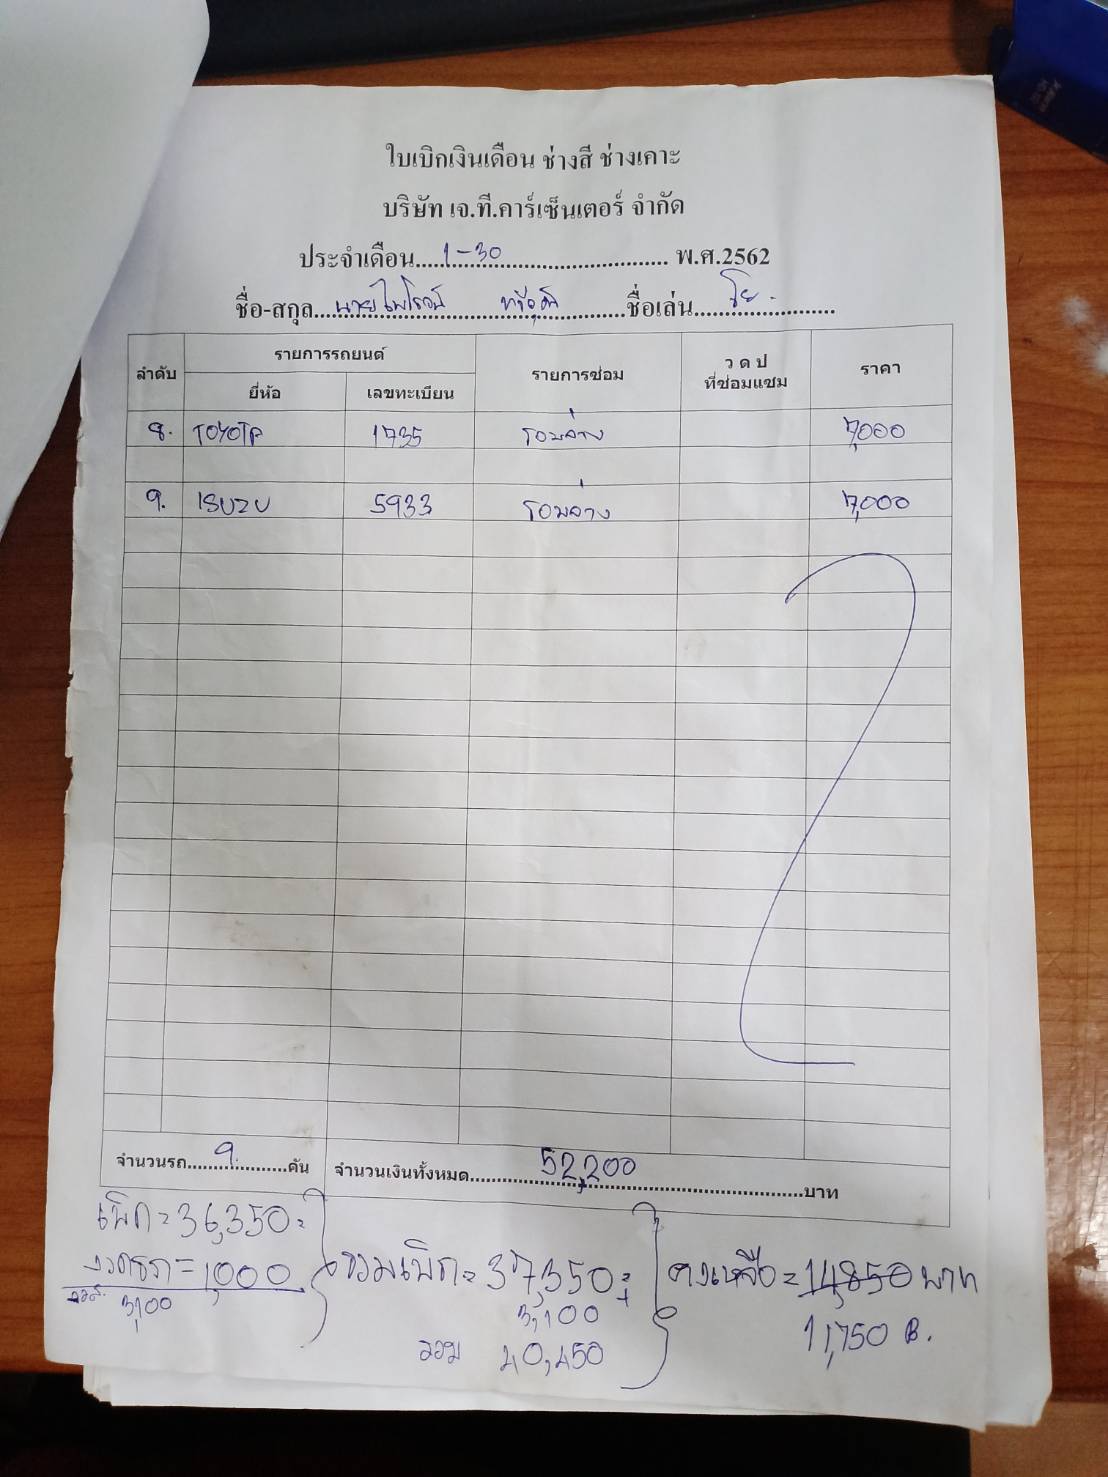 ใบเบิกเงินเดือน ช่างสี ช่างเคาะ
บริษัท เจ.ที.คาร์เซ็นเตอร์ จำกัด
ประจำเดือน.....1-30.....พ.ศ.2562
ชื่อ-สกุล.....นายไพโรจน์.....ชื่อเล่น.....
ลำดับ รายการรถยนต์ รายการซ่อม ว ด ป ที่ซ่อมแซม ราคา
ยี่ห้อ เลขทะเบียน
8. TOYOTA 1735 รอบล่าง 7,000
9. ISUZU 5933 รอบล่าง 7,000
จำนวนรถ.....9.....คัน จำนวนเงินทั้งหมด.....52,200.....บาท
เบิก = 36,350
= 1,000 รวมเบิก = 37,350 คงเหลือ = 14,850 บาท
3,100 3,100 11,750 B.
รวม 40,450